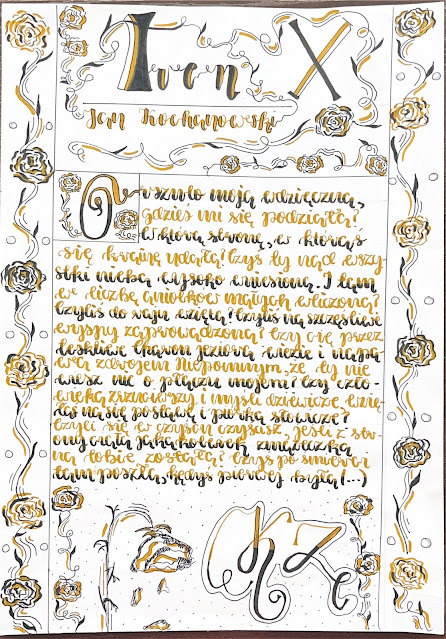 Tren X
Jan Kochanowski
Orszulo moja wdzięczna,
gdzieś mi się podziała?
W którą stronę, w którąś
się krainę udała? Czyś ty nad wszy
stki nieba wysoko wniesiona. I tam
w liczbę aniołków małych wliczona?
Czyliś do raju wzięta? Czyliś na szczęśliwe
wyspy zaprowadzona? Czy cię przez
teskliwe Charon jeziora wiezie i napa
wa zdrojem niepomnym, że ty nie
wiesz nic o płaczu mojem? Czy czło-
wieka zrzuciwszy i myśli dziewicze wzię
łaś na się postawę i piórka słowicze?
Czyli się w czyścu czyścisz jeśli z stro
ny ciała jakakolwiek zmazeczka
na tobie została? Czyś po śmierci
tam poszła, kędyś pierwej była (...)